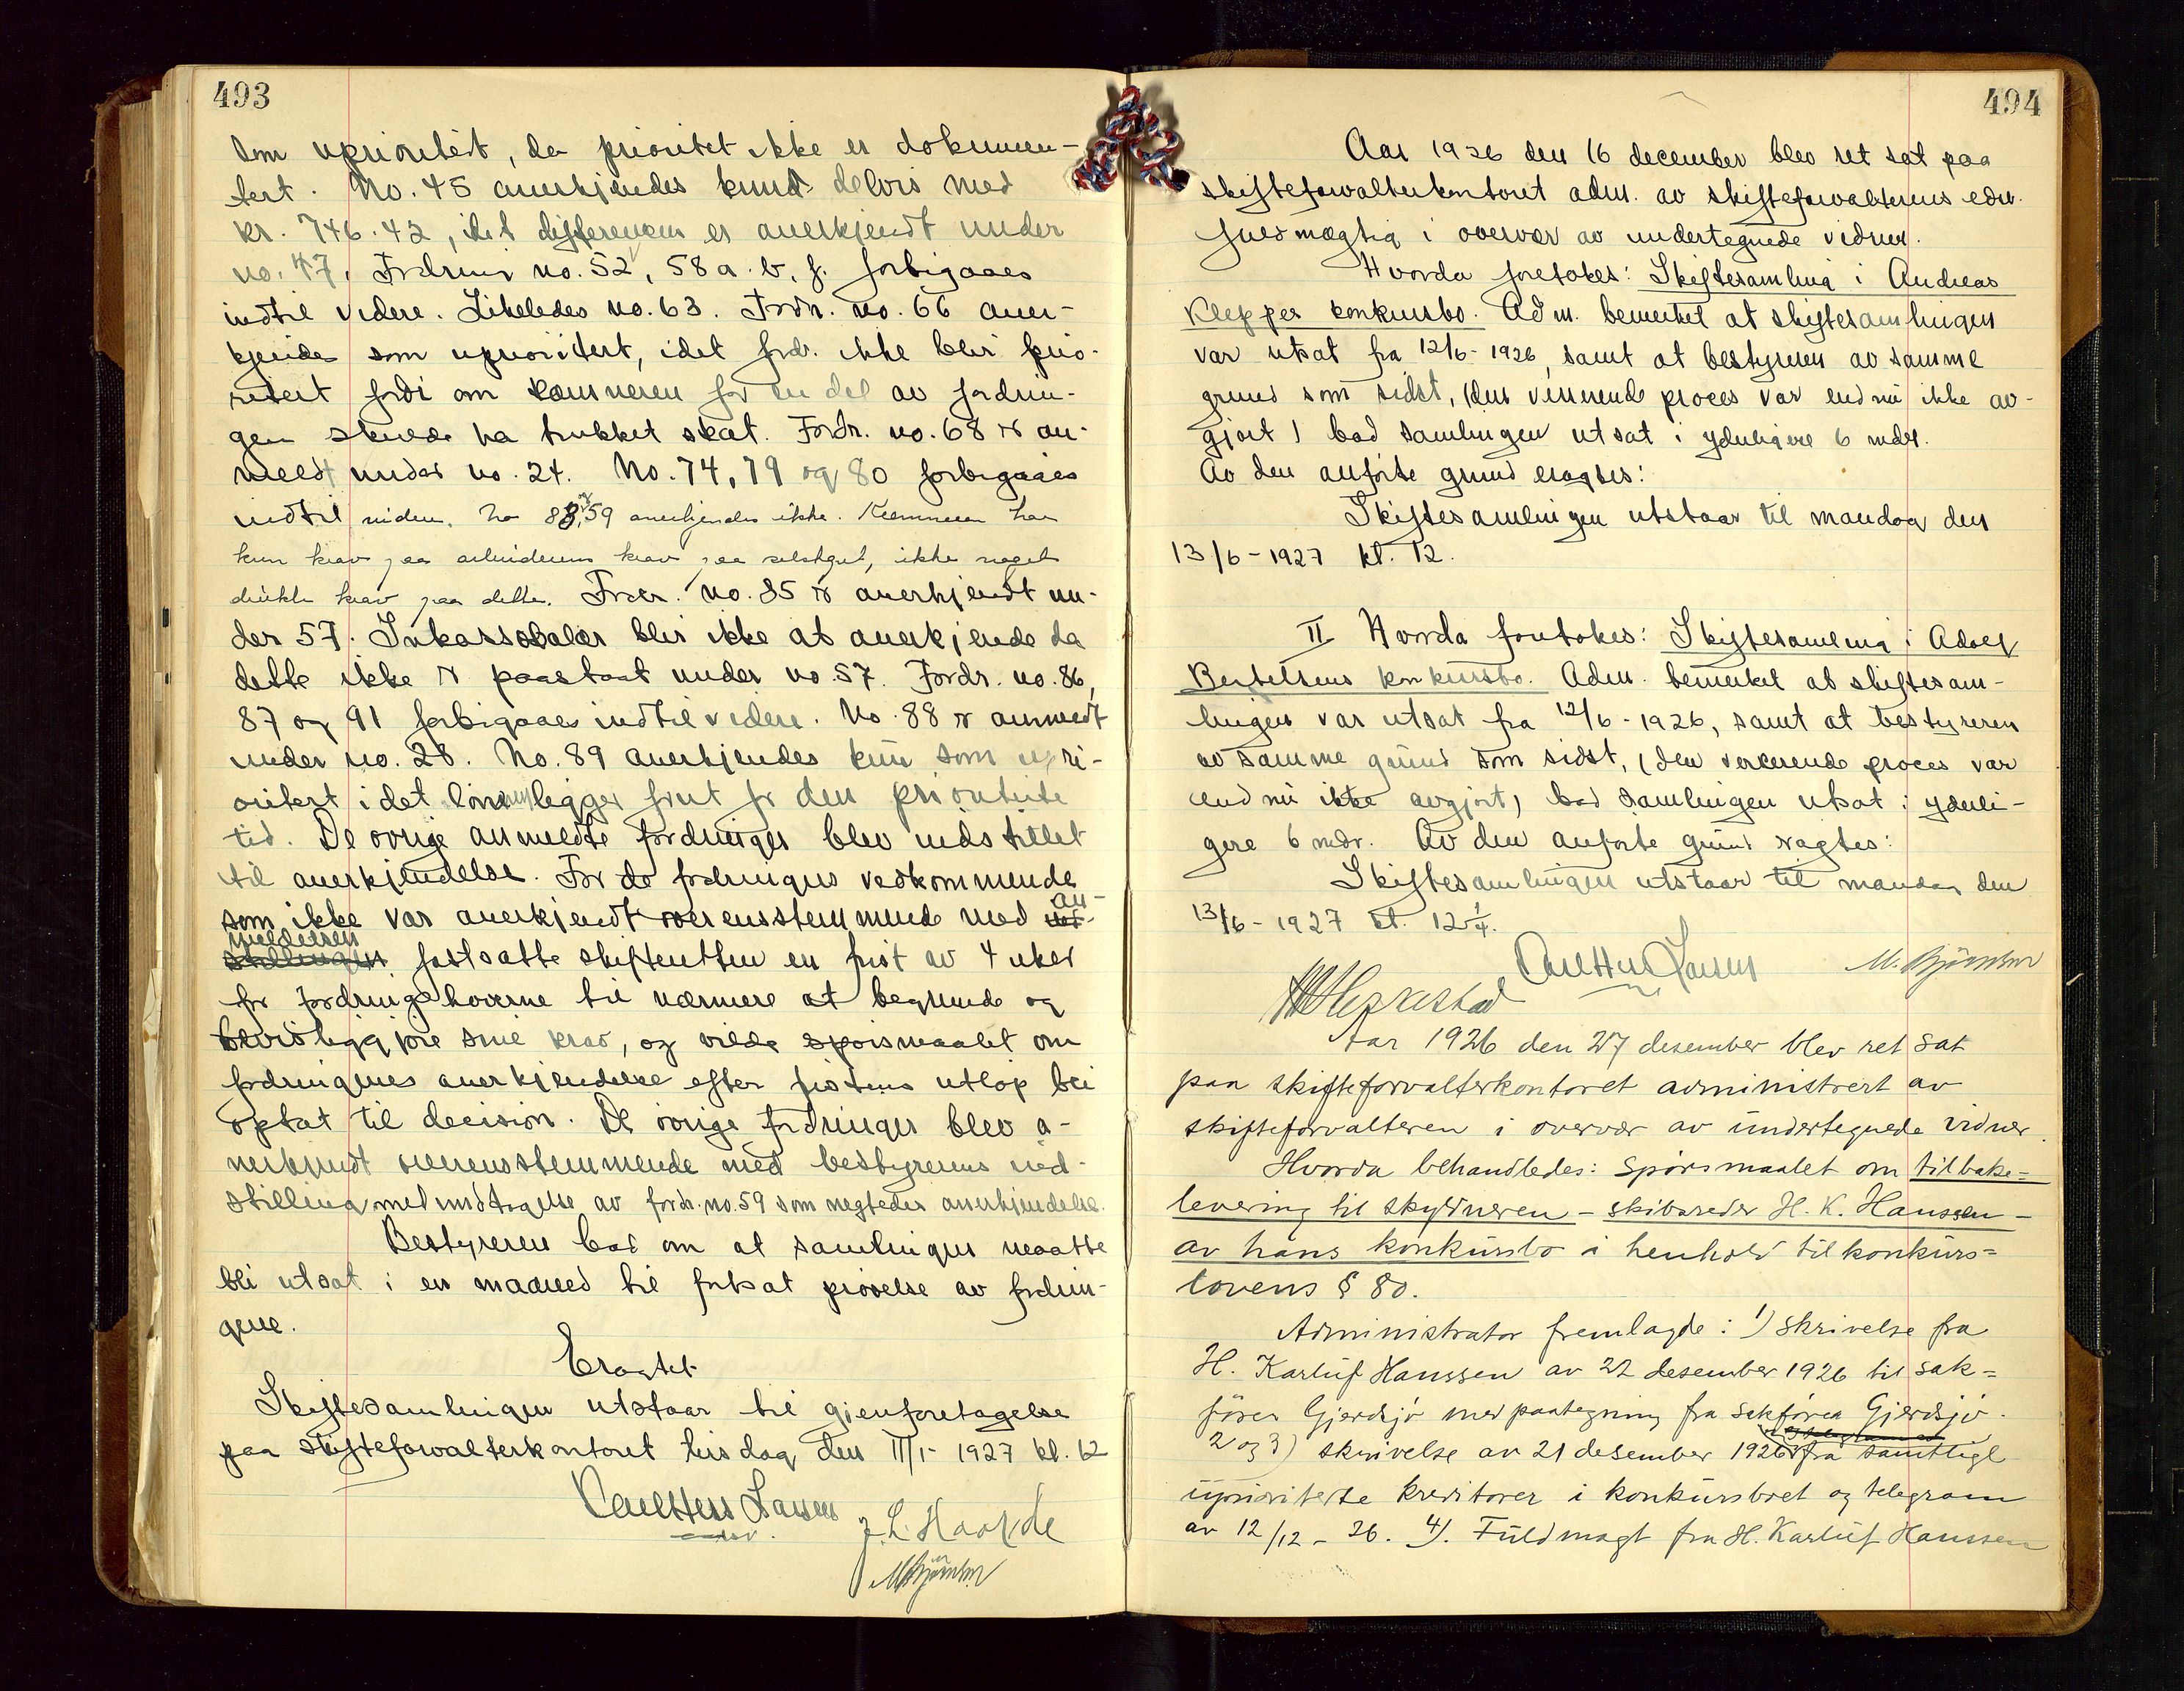 493
som uprioritert, da prioritet ikke er dokumen-
tert. No. 45 anerkjendes kund delvis med
kr. 746.42, idet differencen er anerkjendt under
no. 47. Fordring no. 52, 58 a. b. f. forbigaaes
indtil videre. Likeledes no. 63. Fordr. no. 66 aner-
kjendes som uprioritert, idet fordr. ikke blir prio-
ritert fordi om kæmneren for en del av fordrin-
gen skulde ha trukket skat. Fordr. no. 68 er an-
meldt under no. 24. No. 74, 79 og 80 forbigaaes
indtil videre. No 83, 59 anerkjendes ikke. Kæmneren har
kun krav paa arbeiderens krav paa selskapet, ikke noget
direkte krav paa dette. Fordr. no. 85 er anerkjendt un-
der 57. Inkassosalær blir ikke at anerkjende da
dette ikke er paastaat under no. 57. Fordr. no. 86,
87 og 91 forbigaaes indtil videre. No. 88 er anmeldt
under no. 28. No. 89 anerkjendes kun som upri-
oritert idet lønnen ligger forut for den prioriterte
tid. De øvrige anmeldte fordringer blev indstillet
til anerkjendelse. For de fordringers vedkommende
som ikke var anerkjendt overensstemmende med an-
meldelsen fastsatte skifteretten en frist av 4 uker
for fordringshaverne til nærmere at begrunde og
bevisliggjøre sine krav, og vilde spørsmaalet om
fordringenes anerkjendelse efter fristens utløp bli
optat til decision. De øvrige fordringer blev a-
nerkjendt overensstemmende med bestyrerens ind-
stilling med undtagelse av fordr. no. 59 som negtedes anerkjendelse.
Bestyreren bad om at samlingen maatte
bli utsat i en maaned til fortsat prøvelse av fordrin-
gene.
Eragtet
Skiftesamlingen utstaar til gjenforetagelse
paa skifteforvalterkontoret tirsdag den 11/1- 1927 kl. 12
Carl Hess Larsen
edsv.
J. L. Haaxxde
M. Bjørnsen
494
Aar 1926 den 16 december blev ret sat paa
skifteforvalterkontoret adm. av skifteforvalterens edsv.
fuldmægtig i overvær av undertegnede vidner.
Hvorda foretokes: Skiftesamling i Andreas
Kleppes konkursbo. Adm. bemerket at skiftesamlingen
var utsat fra 12/6- 1926, samt at bestyreren av samme
grund som sidst, (den verserende proces var endnu ikke av-
gjort) bad samlingen utsat i yderligere 6 mdr.
Av den anførte grund eragtes:
Skiftesamlingen utstaar til mandag den
13/6- 1927 kl. 12.
II Hvorda foretokes: Skiftesamling i Adolf
Bertelsens konkursbo. Adm. bemerket at skiftesam-
lingen var utsat fra 12/6- 1926, samt at bestyreren
av samme grund som sidst, (den verserende proces var
endnu ikke avgjort) bad samlingen utsat i yderli-
gere 6 mdr. Av den anførte grund eragtes:
Skiftesamlingen utstaar til mandag den
13/6- 1927 kl. 12 1/4.
Carl Hess Larsen
M. Bjørnsen
Aar 1926 den 27 desember blev ret sat
paa skifteforvalterkontoret administrert av
skifteforvalteren i overvær av undertegnede vidner.
Hvorda behandledes: Spørsmaalet om tilbake=
levering til skyldneren - skibsreder H. K. Hanssen -
av hans konkursbo i henhold til konkurs=
lovens § 80.
Administrator fremlagde: 1) skrivelse fra
H. Karluf Hanssen av 22 desember 1926 til sak=
fører Gjerdsjø med paategning fra sakfører Gjerdsjø.
2 og 3) skrivelse av 21 desember 1926 fra samtlige
uprioriterte kreditorer i konkursboet og telegram
av 12/12 - 26. 4). Fuldmagt fra H. Karluf Hanssen